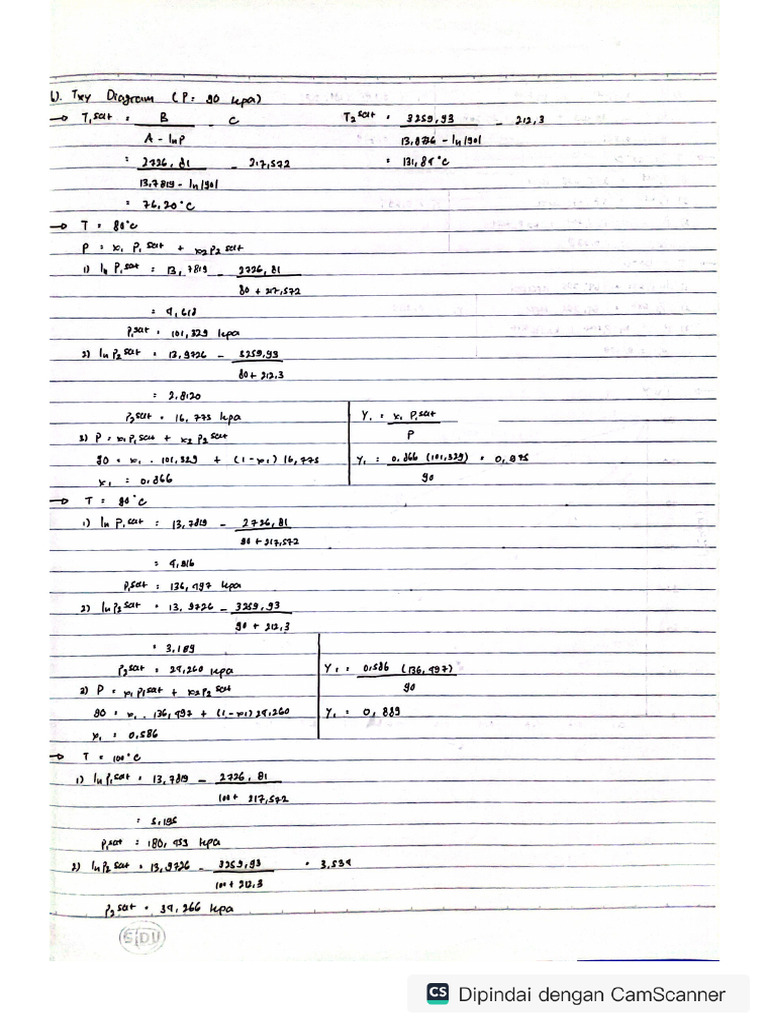 b). Txy Diagram (P = 90 kpa)
→ T1 sat = B / A - ln P - C
T2 sat = 3259,93 / 13,9726 - ln(90) - 212,3
= 2726,81 / 13,7819 - ln(90) - 217,572
= 131,84 °C
= 76,20 °C
→ T = 80 °C
P = x1 P1 sat + x2 P2 sat
1) ln P1 sat = 13,7819 - 2726,81 / 80 + 217,572
= 4,618
P1 sat = 101,329 kpa
2) ln P2 sat = 13,9726 - 3259,93 / 80 + 212,3
= 2,8120
P2 sat = 16,775 kpa
3) P = x1 P1 sat + x2 P2 sat
90 = x1 . 101,329 + (1 - x1) 16,775
x1 = 0,866
Y1 = x1 P1 sat / P
Y1 = 0,866 (101,329) / 90 = 0,975
→ T = 90 °C
1) ln P1 sat = 13,7819 - 2726,81 / 90 + 217,572
= 4,916
P1 sat = 136,497 kpa
2) ln P2 sat = 13,9726 - 3259,93 / 90 + 212,3
= 3,189
P2 sat = 24,260 kpa
3) P = x1 P1 sat + x2 P2 sat
90 = x1 . 136,497 + (1 - x1) 24,260
x1 = 0,586
Y1 = 0,586 (136,497) / 90
Y1 = 0,889
→ T = 100 °C
1) ln P1 sat = 13,7819 - 2726,81 / 100 + 217,572
= 5,195
P1 sat = 180,453 kpa
2) ln P2 sat = 13,9726 - 3259,93 / 100 + 212,3 = 3,534
P2 sat = 34,266 kpa
SIDU
CS Dipindai dengan CamScanner